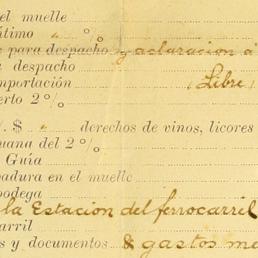 el muelle
ítimo " %
para despacho y aclaración á
despacho
mportación (Libre)
erto 2%
% $ " derechos de vinos, licores
uana del 2%
Guía
adura en el muelle
bodega
la Estación del ferrocarril
arril
s y documentos & gastos me